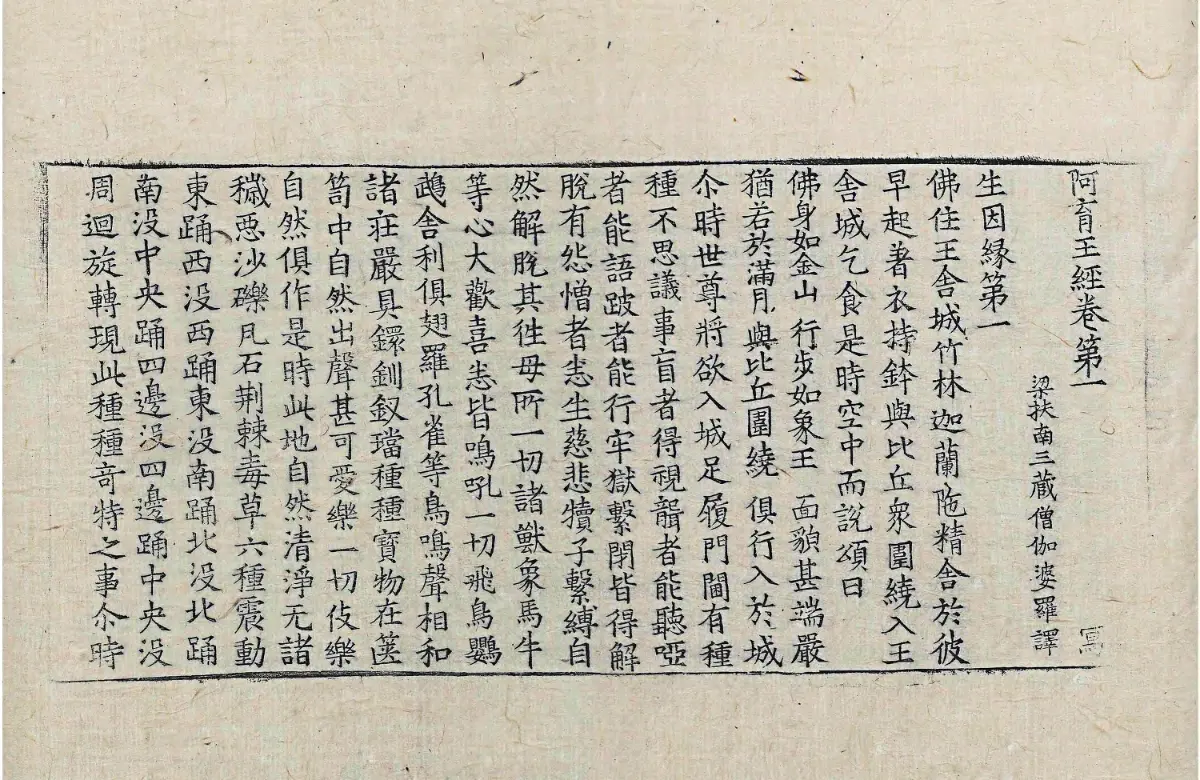 阿育王經卷第一 寫
梁扶南三藏僧伽婆羅譯
生因緣第一
佛住王舍城竹林迦蘭陁精舍於彼
早起著衣持鉢與比丘衆圍繞入王
舍城乞食是時空中而說頌曰
佛身如金山 行步如象王 面貌甚端嚴
猶若於滿月 與比丘圍繞 俱行入於城
尒時世尊將欲入城足履門閫有種
種不思議事盲者得視聾者能聽啞
者能語跛者能行牢獄繫閉皆得解
脫有怨憎者悉生慈悲犢子繫縛自
然解脫其徃母所一切諸獸象馬牛
等心大歡喜悉皆鳴吼一切飛鳥鸚
鵡舍利俱翅羅孔雀等鳥鳴聲相和
諸莊嚴具鐶釧釵璫種種寶物在篋
笥中自然出聲甚可愛樂一切伎樂
自然俱作是時此地自然清淨无諸
穢惡沙礫瓦石荆棘毒草六種震動
東踊西没西踊東没南踊北没北踊
南没中央踊四邊没四邊踊中央没
周迴旋轉現此種種竒特之事尒時